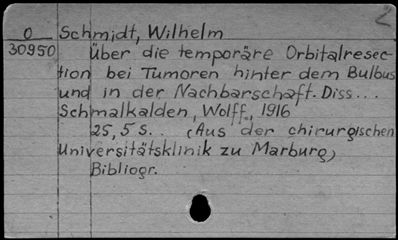 O Schmidt, Wilhelm
30950 Über die temporäre Orbitalresec-
tion bei Tumoren hinter dem Bulbus
und in der Nachbarschaft. Diss...
Schmalkalden, Wolff, 1916
25,5 S. (Aus der chirurgischen
Universitätsklinik zu Marburg)
Bibliogr.